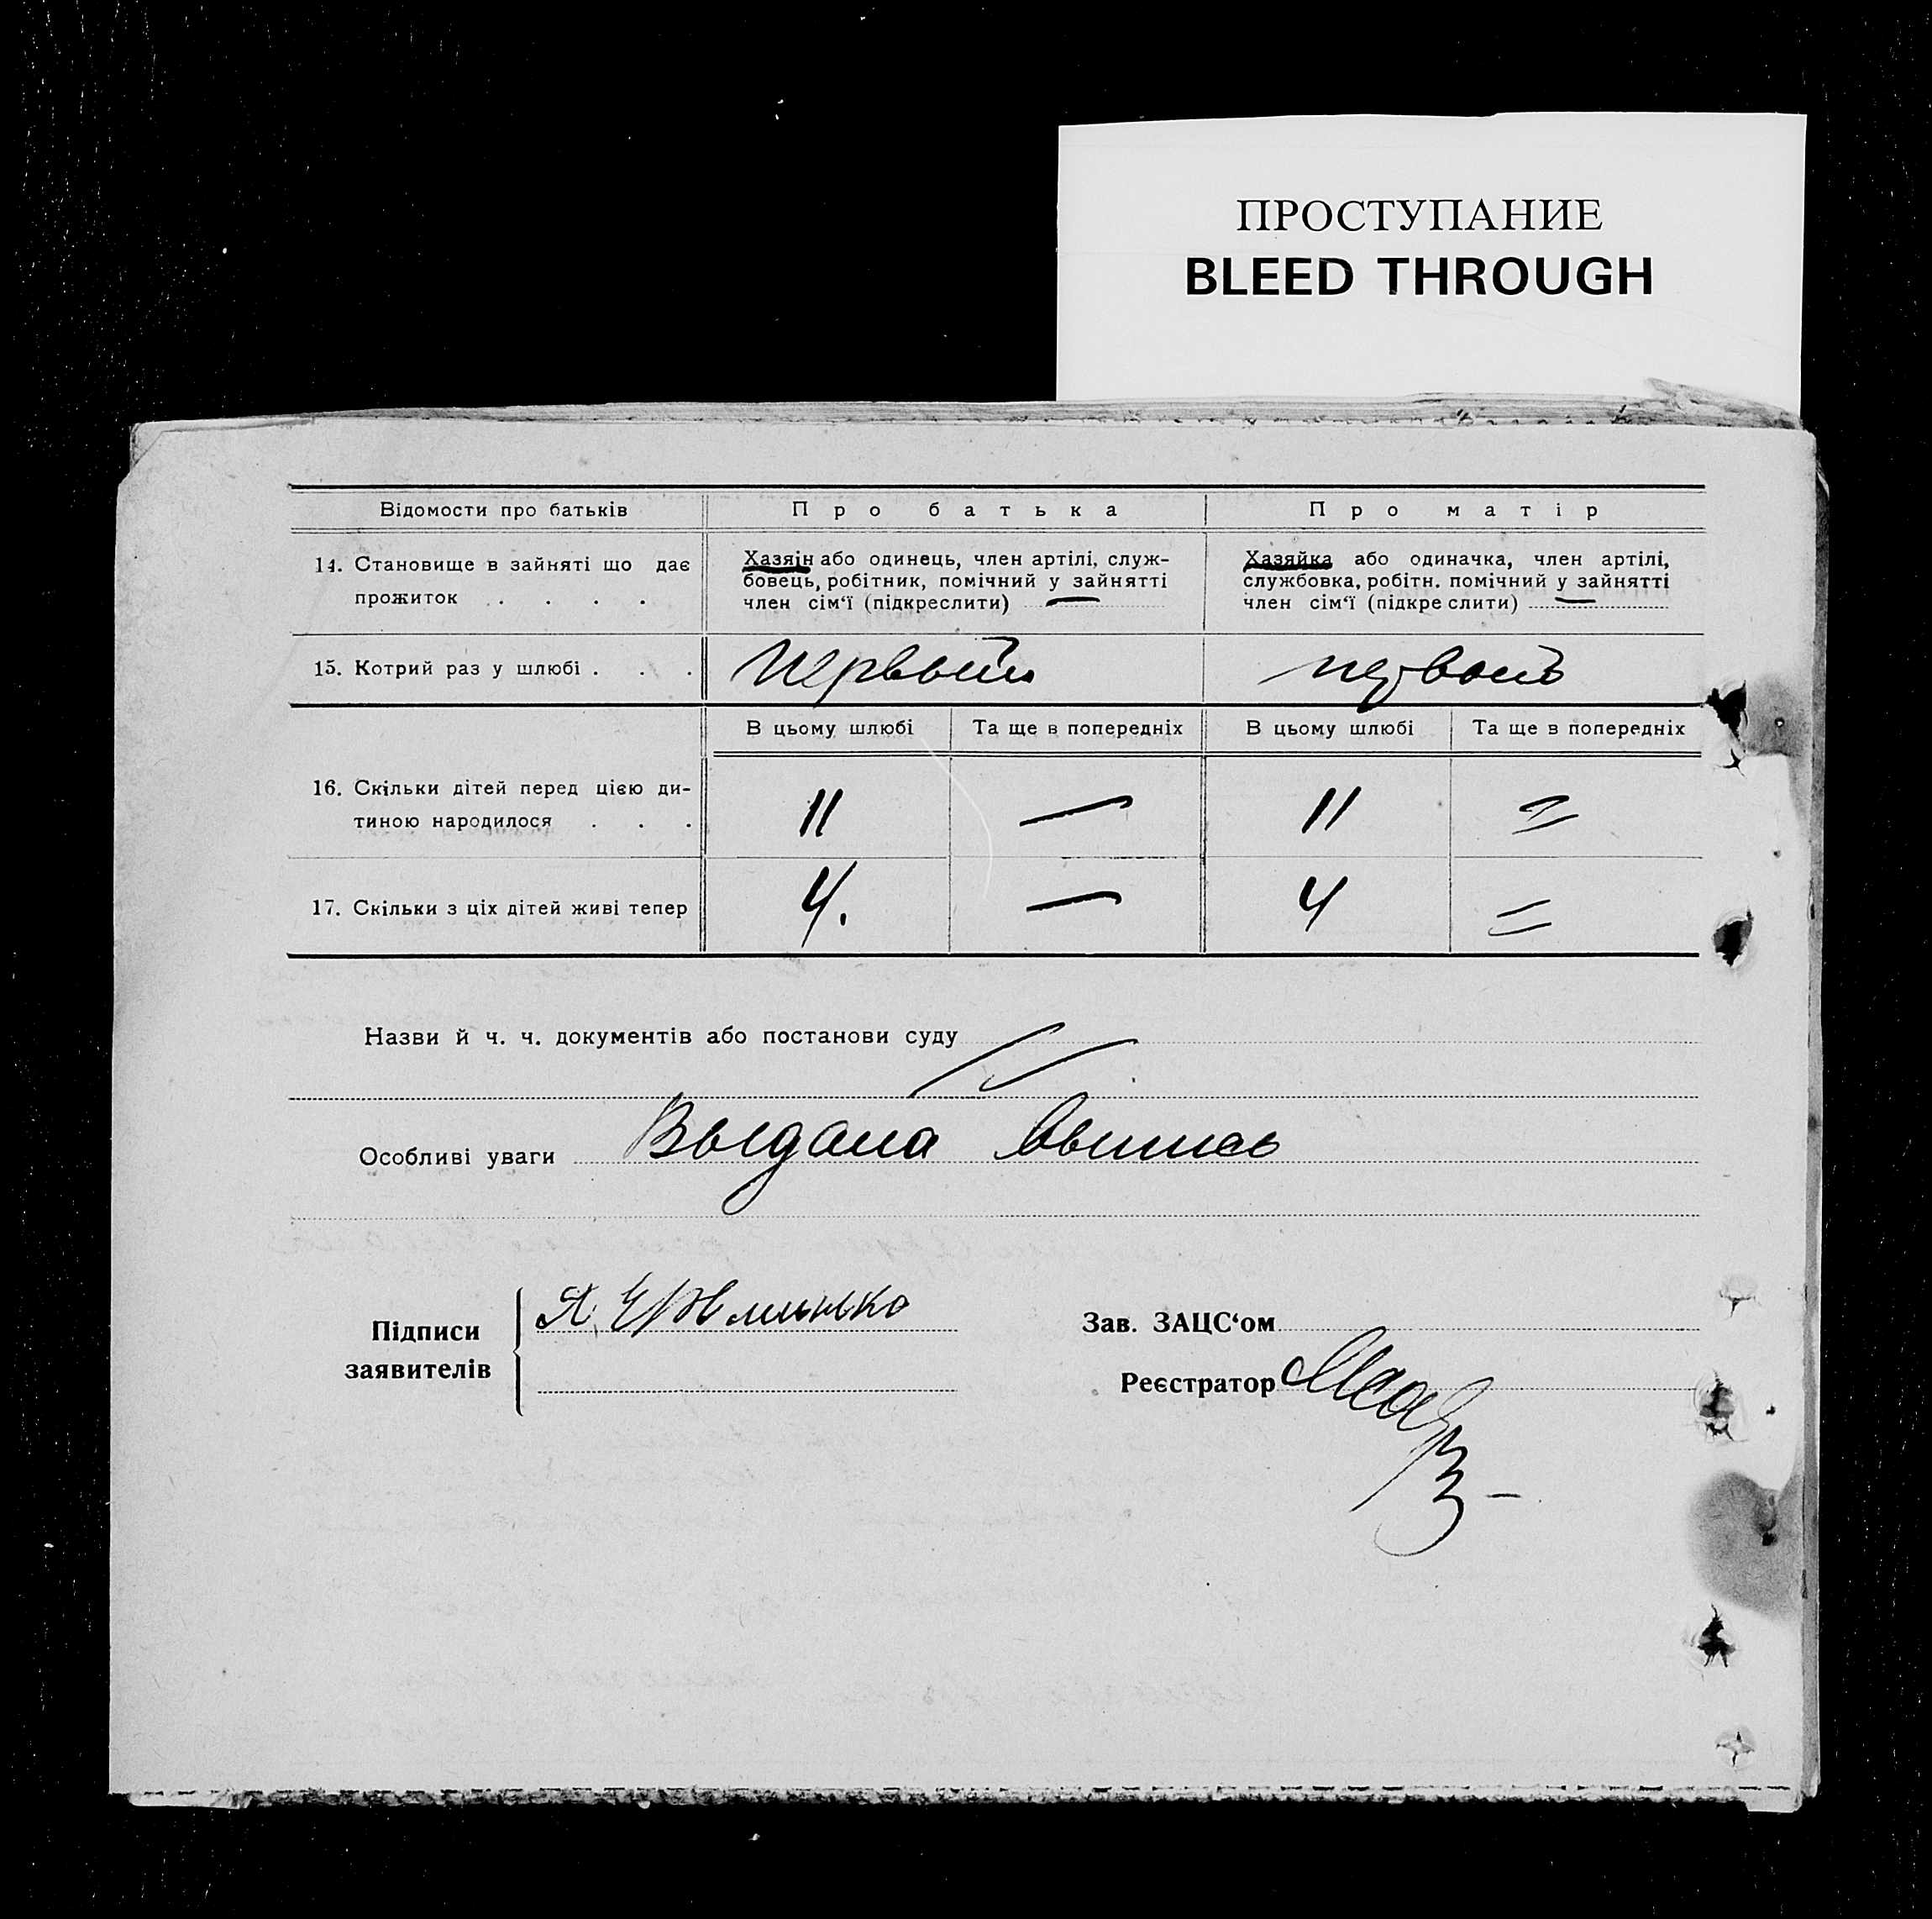 ПРОСТУПАНИЕ
BLEED THROUGH
Відомости про батьків
Про батька
Про матір
14. Становище в зайняті що дає
прожиток . . . .
Хазяїн або одинець, член артілі, служ-
бовець, робітник, помічний у зайнятті
член сім‘ї (підкреслити)
Хазяйка або одиначка, член артілі,
службовка, робітн. помічний у зайнятті
член сім‘ї (підкреслити)
15. Котрий раз у шлюбі . . .
Первый
первый
В цьому шлюбі
Та ще в попередніх
В цьому шлюбі
Та ще в попередніх
16. Скільки дітей перед цією ди-
тиною народилося . . .
11
—
11
=
17. Скільки з ціх дітей живі тепер
4.
—
4
=
Назви й ч. ч. документів або постанови суду
Особливі уваги Выдана выпись
Підписи
заявителів
Зав. ЗАЦС‘ом
Реєстратор